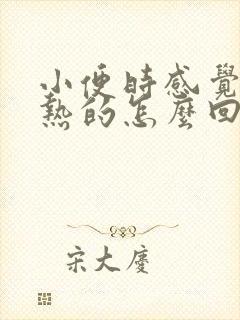 小便時感覺
熱的怎麼回
宋大慶